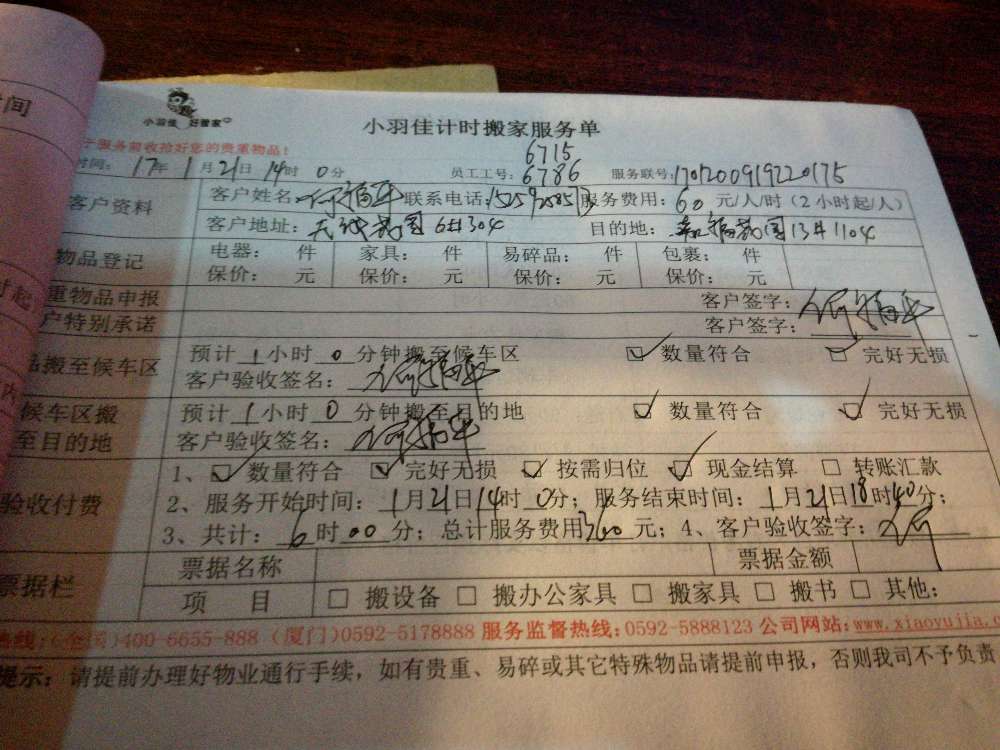 时间
小羽佳 好管家
小羽佳计时搬家服务单
服务前收拾好您的贵重物品!
6715
时间: 17年1月21日14时0分 员工工号: 6786 服务联号: 1701200919220175
客户资料
客户姓名: 何福平 联系电话: 服务费用: 60 元/人/时 (2小时起/人)
客户地址: 6#304 目的地: 13#1104
物品登记
电器: 件 家具: 件 易碎品: 件 包裹: 件
保价: 元 保价: 元 保价: 元 保价: 元
重物品申报 客户签字: 何福平
户特别承诺 客户签字:
品搬至候车区
预计1小时0分钟搬至候车区 数量符合 完好无损
客户验收签名: 何福平
候车区搬至目的地
预计1小时0分钟搬至目的地 数量符合 完好无损
客户验收签名: 何福平
验收付费
1、 数量符合 完好无损 按需归位 现金结算 转账汇款
2、服务开始时间: 1月21日14时0分; 服务结束时间: 1月21日18时40分;
3、共计: 6时00分; 总计服务费用360元; 4、客户验收签字: 何
票据栏
票据名称 票据金额
项 目 搬设备 搬办公家具 搬家具 搬书 其他:
热线: (全国)400-6655-888 (厦门)0592-5178888 服务监督热线: 0592-5888123 公司网站: www.xiaoyujia.c
提示: 请提前办理好物业通行手续, 如有贵重、易碎或其它特殊物品请提前申报, 否则我司不予负责